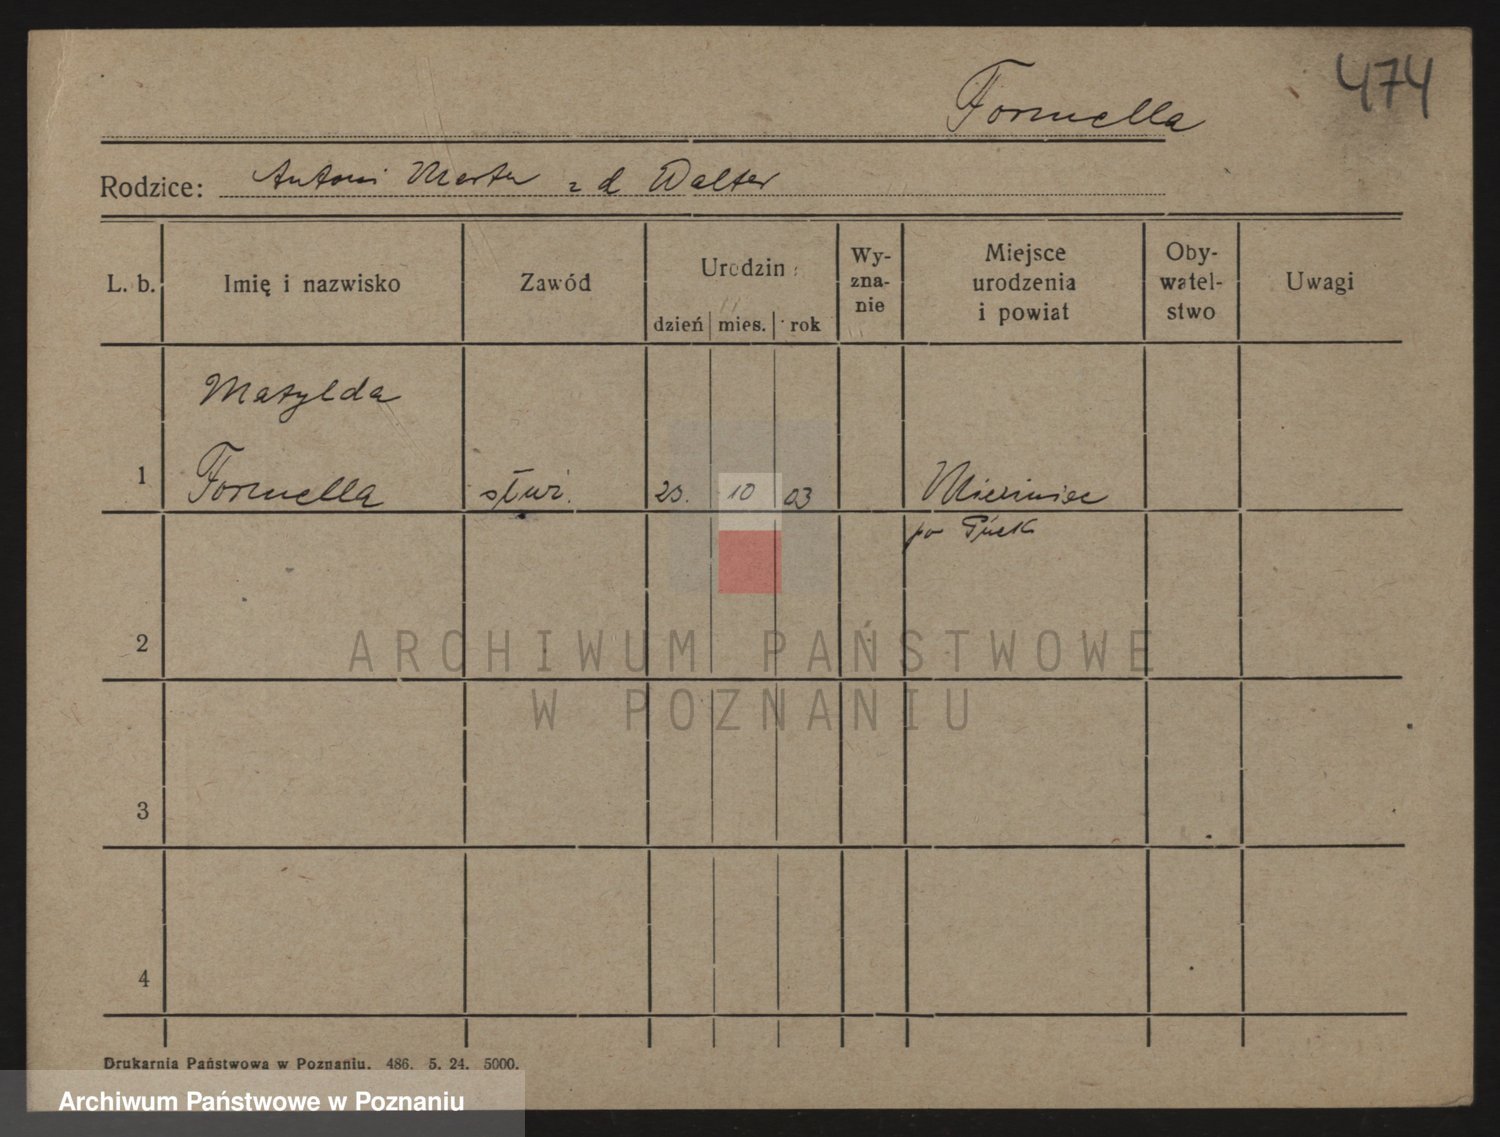 474
Formella
Rodzice: Antoni Marta z d Walter
L. b. Imię i nazwisko Zawód Urodzin Wy-zna-nie Miejsce urodzenia i powiat Oby-watel-stwo Uwagi
dzień mies. rok
Matylda
1 Formella służ. 10 03
po Puck
2
ARCHIWUM PAŃSTWOWE
W POZNANIU
3
4
Drukarnia Państwowa w Poznaniu. 486. 5. 24. 5000.
Archiwum Państwowe w Poznaniu